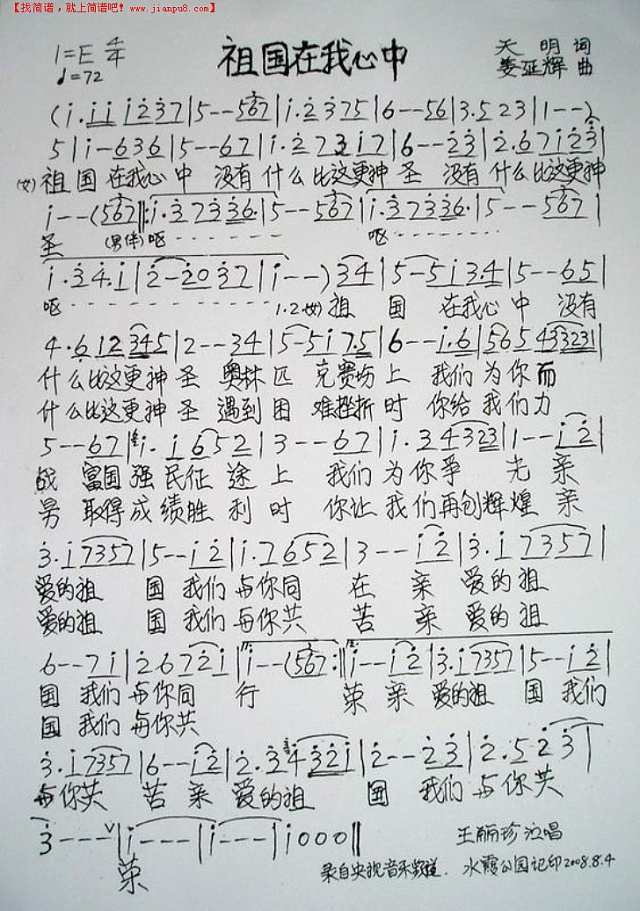 【找简谱，就上简谱吧！www.jianpu8.com】
1=E 4/4
♩=72
祖国在我心中
天明 词
姜延辉 曲
(i. i i i 2 3 7 | 5 - - 5 6 7 | i. 2 3 7 5 | 6 - - 5 6 | 3. 5 2 3 | 1 - - )
5 | i - 6 3 6 | 5 - - 6 7 | i. 2 7 3 i 7 | 6 - - 2 3 | 2. 6 7 i 2 3 |
(女) 祖 国 在我心 中 没有 什么比这更神 圣 没有 什么比这更神
i - - (5 6 7 ‖: i. 3 7 3 3 6. | 5 - - 5 6 7 | i. 3 7 3 3 6. | 5 - - 5 6 7 |
圣 (男伴) 呕 - - - - - - 呕 - - - - - -
i. 3 4. i | 2 - 2 0 3 7 | i - - ) 3 4 | 5 - 5 i 3 4 | 5 - - 6 5 |
呕 - - - - - - 1.2.(女) 祖 国 在我心 中 没有
4. 6 1 2 3 4 5 | 2 - - 3 4 | 5 - 5 i 7. 5 | 6 - - i. 6 | 5 6 5 4 3 3 2 3 1 |
什么比这更神 圣 奥林 匹 克赛场 上 我们 为你而
什么比这更神 圣 遇到 困 难挫折 时 你给 我们力
5 - - 6 7 | i. i 6 5 2 | 3 - - 6 7 | i. 3 4 3 2 3 | 1 - - i 2 |
战 富国 强民征途 上 我们 为你争 光 亲
男 取得 成绩胜利 时 你让 我们再创辉 煌 亲
3. i 7 3 5 7 | 5 - - i 2 | i. 7 6 5 2 | 3 - - i 2 | 3. i 7 3 5 7 |
爱的祖 国 我们 与你同 在 亲 爱的祖
爱的祖 国 我们 与你共 苦 亲 爱的祖
6 - - 7 i | 2. 6 7 2 i | i - - (5 6 7 :‖ i - - i 2 | 3. i 7 3 5 7 | 5 - - i 2 |
国 我们 与你同 行 荣 亲 爱的祖 国 我们
国 我们 与你共
3. i 7 3 5 7 | 6 - - i 2 | 2. 3 4 3 2 i | 2 - - 2 3 | 2. 5 2 3 |
与你共 苦 亲 爱的祖 国 我们 与你共
3 - - - ∨ ‖ i - - - | i - - - | i 0 0 0 ‖
荣
王丽珍 泣唱
录自央视音乐频道. 水霞公园记印2008.8.4